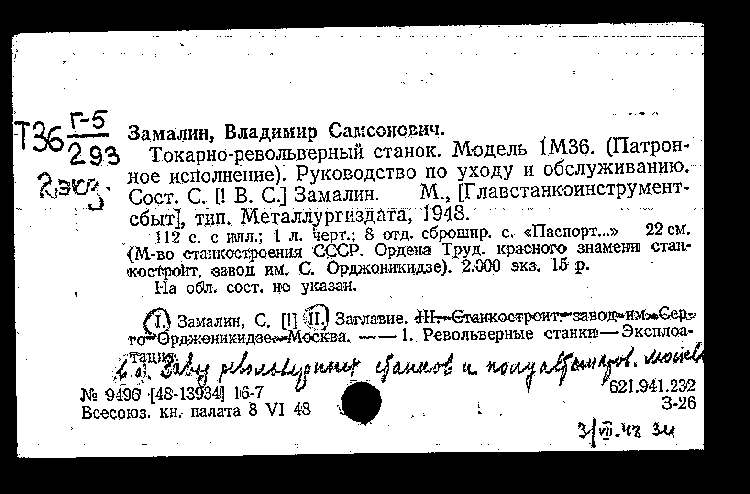 Т36 Г-5
293
2 экз.
Замалин, Владимир Самсонович.
Токарно-револьверный станок. Модель 1М36. (Патрон-
ное исполнение). Руководство по уходу и обслуживанию.
Сост. С. [! В. С.] Замалин. М., [Главстанкоинструмент-
сбыт], тип. Металлургиздата, 1948.
112 с. с илл.; 1 л. черт.; 8 отд. сброшир. с. «Паспорт...» 22 см.
(М-во станкостроения СССР. Ордена Труд. красного знамени стан-
костроит. завод им. С. Орджоникидзе). 2.000 экз. 15 р.
На обл. сост. не указан.
I. Замалин, С. [!] II. Заглавие. III. Станкостроит. завод им. Сер-
го Орджоникидзе. Москва. —— 1. Револьверные станки — Эксплоа-
тация.
Завод револьверных станков и полуавтоматов. Москва
№ 9496 [48-13934] 16-7
621.941.232
Всесоюз. кн. палата 8 VI 48
З-26
3/VII.48